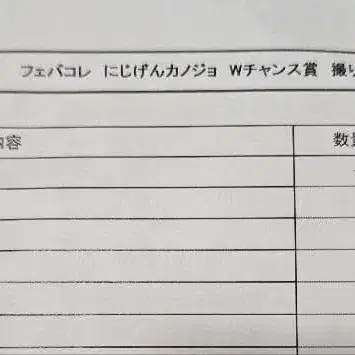 フェバコレ にじげんカノジョ Wチャンス賞 撮り
内容
数量